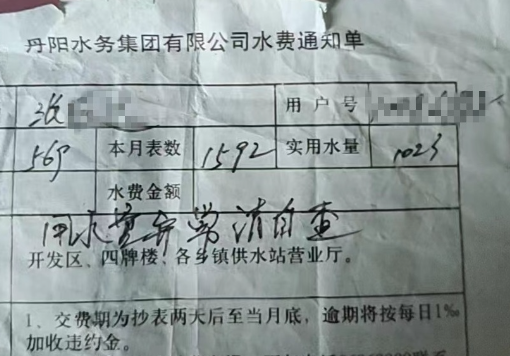 丹阳水务集团有限公司水费通知单
张 用户号
569 本月表数 1592 实用水量 1023
水费金额
用水量异常请自查
开发区、四牌楼、各乡镇供水站营业厅。
1、交费期为抄表两天后至当月底，逾期将按每日1‰
加收违约金。